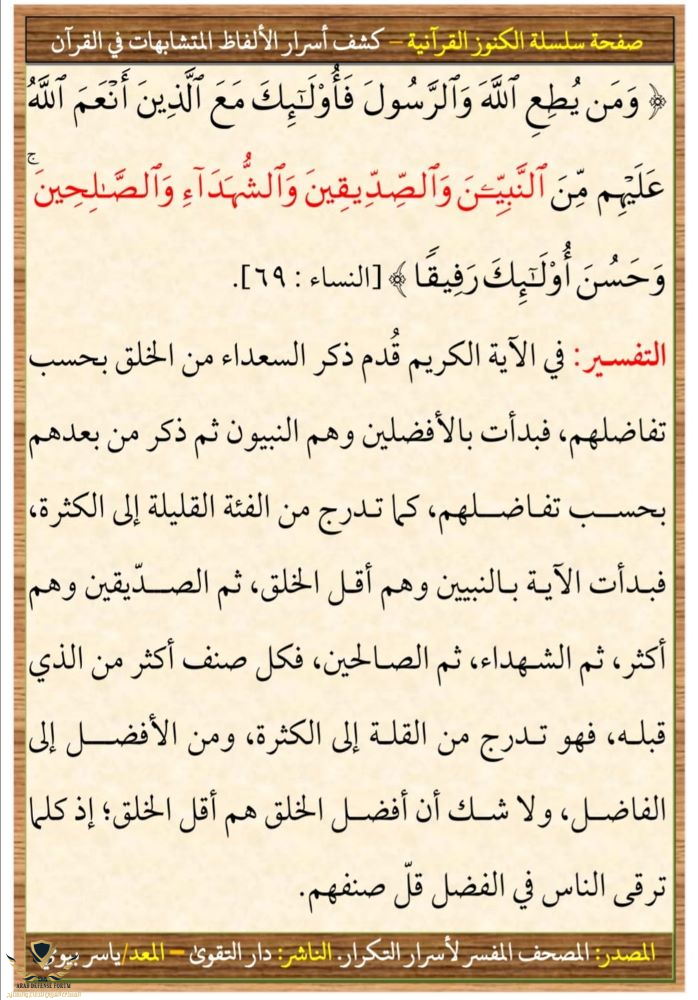 صفحة سلسلة الكنوز القرآنية – كشف أسرار الألفاظ المتشابهات في القرآن
﴿ وَمَن يُطِعِ ٱللَّهَ وَٱلرَّسُولَ فَأُو۟لَـٰٓئِكَ مَعَ ٱلَّذِينَ أَنْعَمَ ٱللَّهُ
عَلَيْهِم مِّنَ ٱلنَّبِيِّـۧنَ وَٱلصِّدِّيقِينَ وَٱلشُّهَدَآءِ وَٱلصَّـٰلِحِينَ ۚ
وَحَسُنَ أُو۟لَـٰٓئِكَ رَفِيقًا ﴾ [النساء : ٦٩].
التفسير: في الآية الكريم قُدم ذكر السعداء من الخلق بحسب
تفاضلهم، فبدأت بالأفضلين وهم النبيون ثم ذكر من بعدهم
بحسب تفاضلهم، كما تدرج من الفئة القليلة إلى الكثرة،
فبدأت الآية بالنبيين وهم أقل الخلق، ثم الصدّيقين وهم
أكثر، ثم الشهداء، ثم الصالحين، فكل صنف أكثر من الذي
قبله، فهو تدرج من القلة إلى الكثرة، ومن الأفضل إلى
الفاضل، ولا شك أن أفضل الخلق هم أقل الخلق؛ إذ كلما
ترقى الناس في الفضل قلّ صنفهم.
المصدر: المصحف المفسر لأسرار التكرار. الناشر: دار التقوىٰ – المعد/ياسر بيومي
ARAB DEFENSE FORUM